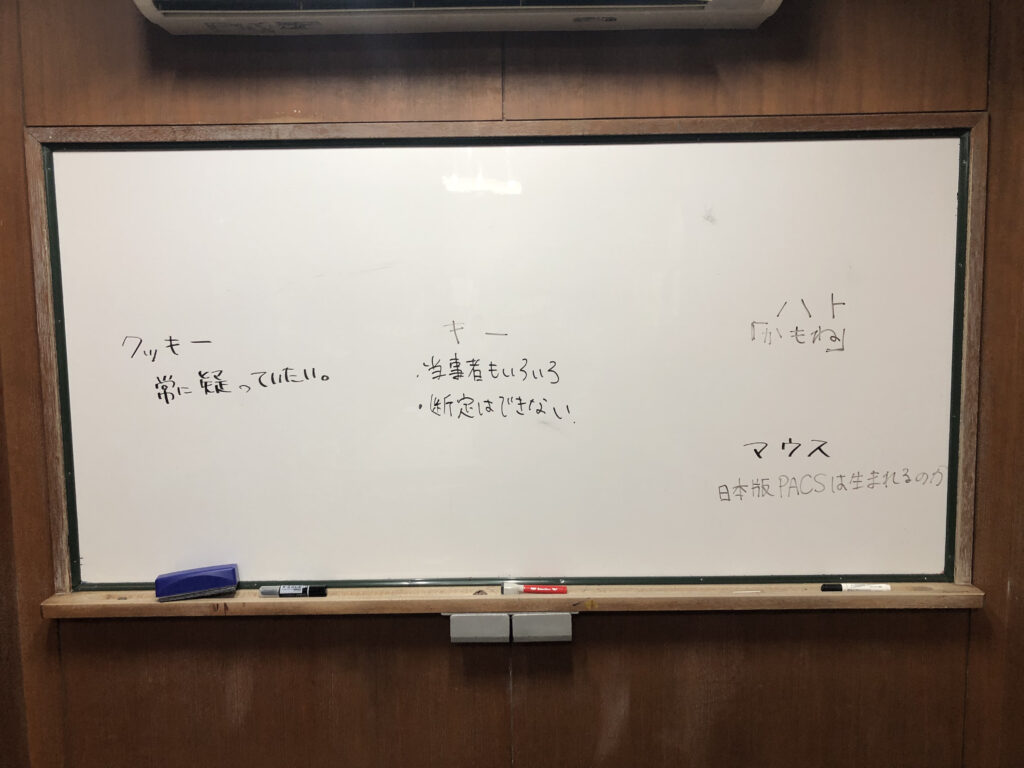 クッキー
常に疑っていたい。
キー
・当事者もいろいろ
・断定はできない.
ハト
「かもね」
マウス
日本版PACSは生まれるのか